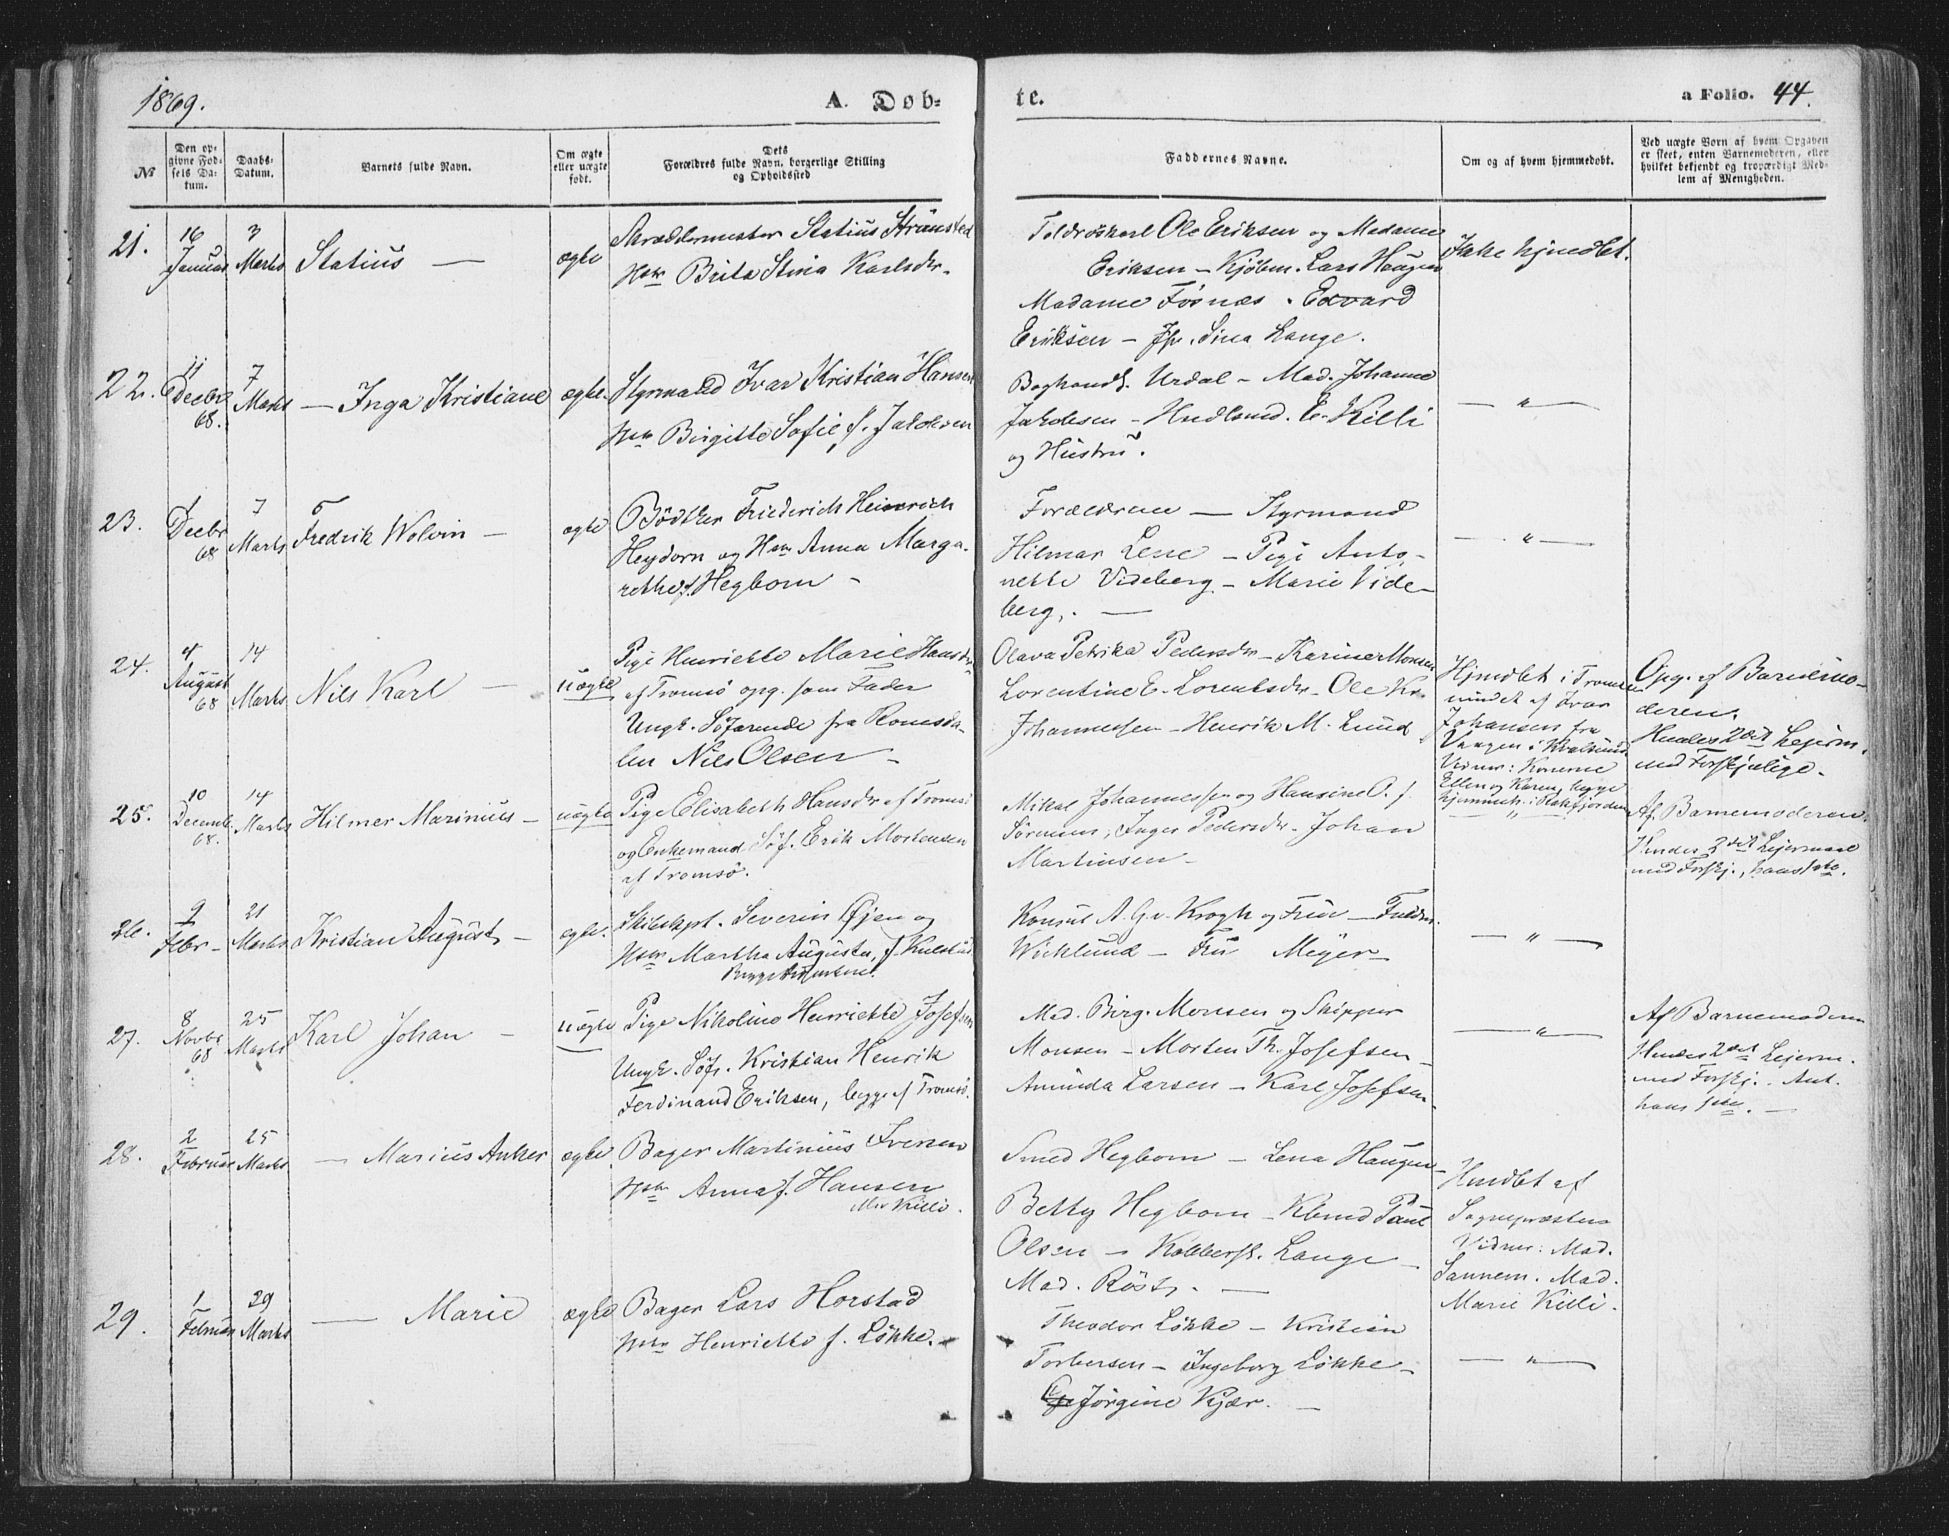 1869.
A. Døb-
te.
a Folio. 44.
№
Den op-
givne Fød-
sels Da-
tum.
Daabs-
Datum.
Barnets fulde Navn.
Om ægte
eller uægte
født.
Dets
Forældres fulde Navn, borgerlige Stilling
og Opholdssted
Faddernes Navne.
Om og af hvem hjemmedøbt.
Ved uægte Børn af hvem Opgaven
er skeet, enten Barnemoderen, eller
hvilket bekjendt og troværdigt Med-
lem af Menigheden.
21.
16
Januar
3
Marts
Statius —
ægte
Skræddermester Statius Strömsted
Hstr Brita Stina Karlsdr.
Toldroskarl Ole Eriksen og Madame
Eriksen – Kjöbm. Lars Haugen
Madame Fosnæs . Edvard
Eriksen – Jfr. Sina Lange.
Ikke hjmdbt.
22.
11
Decbr
68.
7
Marts
— Inga Kristiane
ægte.
Styrmand Ivar Kristian Hansen
Hstr Birgitte Sofie f. Jakobsen
Boghandl. Urdal – Mad. Johanne
Jakobsen – Hndlsmd. E. Killi
og Hustru.
— " —
23.
1
Decbr
68
7
Marts
Fredrik Wolvin —
ægte
Bödker Friederich Heinerich
Heydorn og Hstr Anna Marga-
rethe f. Hegbom –
Forældrene — Styrmand
Hilmar Lene – Pige Anto-
nette Videberg – Marie Vide-
berg. —
— " —
24.
4
August
68
14
Marts
Nils Karl —
uægte
Pige Henriette Marie Hansdr
af Tromsö opg. som Fader
Ungk. Söfarende fra Romsda-
len Nils Olsen –
Olava Petrika Pedersdr – Karine Monsen
Lorentine E. Lorentsdr – Ole Kr.
Johannessen – Henrik M. Lund
Hjmdbt i Tromsö
sundet af Ivar
Johansen fra
Vaagen i Kvalsund
Vidner: Konerne
Ellen og Karen, begge
hjemmeh. i
Opg. af Barnemo-
deren.
Hendes 2det Lejerm.
med Forskjellige.
25.
10
Decemb.
68.
14
Marts
Hilmer Marinius –
uægte
Pige Elisabeth Hansdr af Tromsö
og Enkemand Söf. Erik Mortensen
af Tromsö.
Mikal Johannessen og Hansine O. f.
Sörensen, Inger Pedersdr. Johan
Martinsen –
— " —
Af Barnemoderen.
Hendes 3die Lejermaal
med Forskj., hans 1ste.
26.
9
Febr –
21
Marts
Kristian August –
ægte.
Skibskpt. Severin Öjen og
Hstr Martha Augusta, f. Kulstad
Konsul A. G. v. Krogh og Frue — Fuldm.
Wicklund – Fru Meyer –
— " —
27.
8
Novbr
68
25
Marts
Karl Johan –
uægte
Pige Nikoline Henriette Josefsen
Ungk. Söf. Kristian Henrik
Ferdinand Eriksen, begge af Tromsö.
Mad. Birg. Monsen og Skipper
Monsen – Morten Th. Josefsen –
Amunda Larsen – Karl Josefsen.
— " —
Af Barnemoderen
Hendes 2det Lejerm.
med Forskj. – Ant.
hans 1ste. —
28.
2
Februar
25
Marts
— Marius Anker
ægte
Bager Martinius Iversen
Hstr Anna f. Hansen
Killi.
Smed Hegbom – Lena Haugen –
Betty Hegbom – Kbmd Paul
Olsen – Kobbersl. Lange –
Mad. Röst. —
Hmdbt af
Sognepræsten
Vidner: Mad.
Sannem. Mad.
Marie Killi.
29.
1
Februar
29
Marts
— Marie
ægte
Bager Lars Horstad
Hstr Henriette f. Lökke.
Theodor Lökke – Kristian
Torbersen – Ingeborg Lökke –
Jörgine Kjær. —
— " —